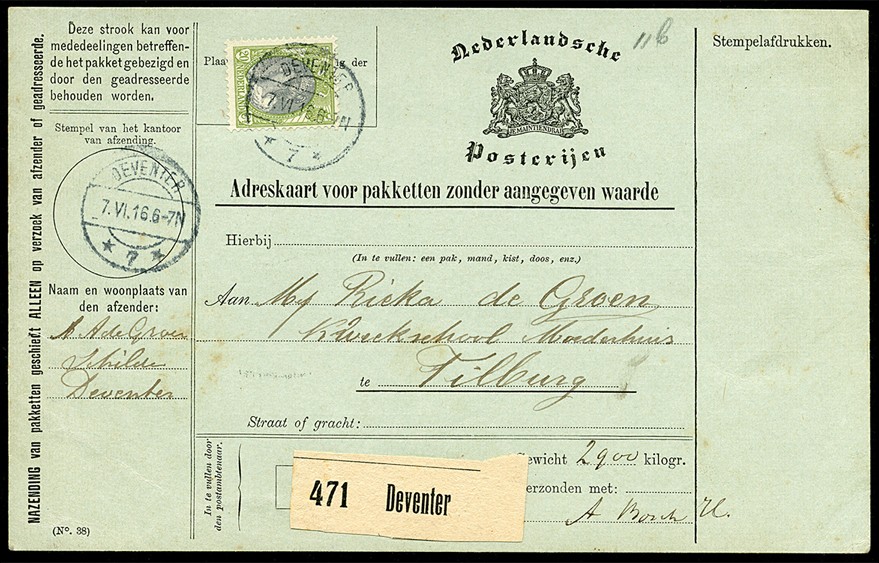 NAZENDING van pakketten geschiedt ALLEEN op verzoek van afzender of geadresseerde.
Deze strook kan voor
mededeelingen betreffen-
de het pakket gebezigd en
door den geadresseerde
behouden worden.
Stempel van het kantoor
van afzending.
DEVENTER
7.VI.16.6-7N
7
Naam en woonplaats van
den afzender:
A A de Groen
Schilder
Deventer
(No. 38)
Plaa
ig der
DEVENTER
7.VI.16.6-7N
7
Nederlandsche
JE MAINTIENDRAI
Posterijen
116
Stempelafdrukken.
Adreskaart voor pakketten zonder aangegeven waarde
Hierbij
(In te vullen: een pak, mand, kist, doos, enz.)
Aan Mej Rieka de Groen
Kweekschool Moederhuis
te Tilburg
Straat of gracht:
In te vullen door
den postambtenaar.
471 Deventer
ewicht 2900 kilogr.
erzonden met:
A Bosch